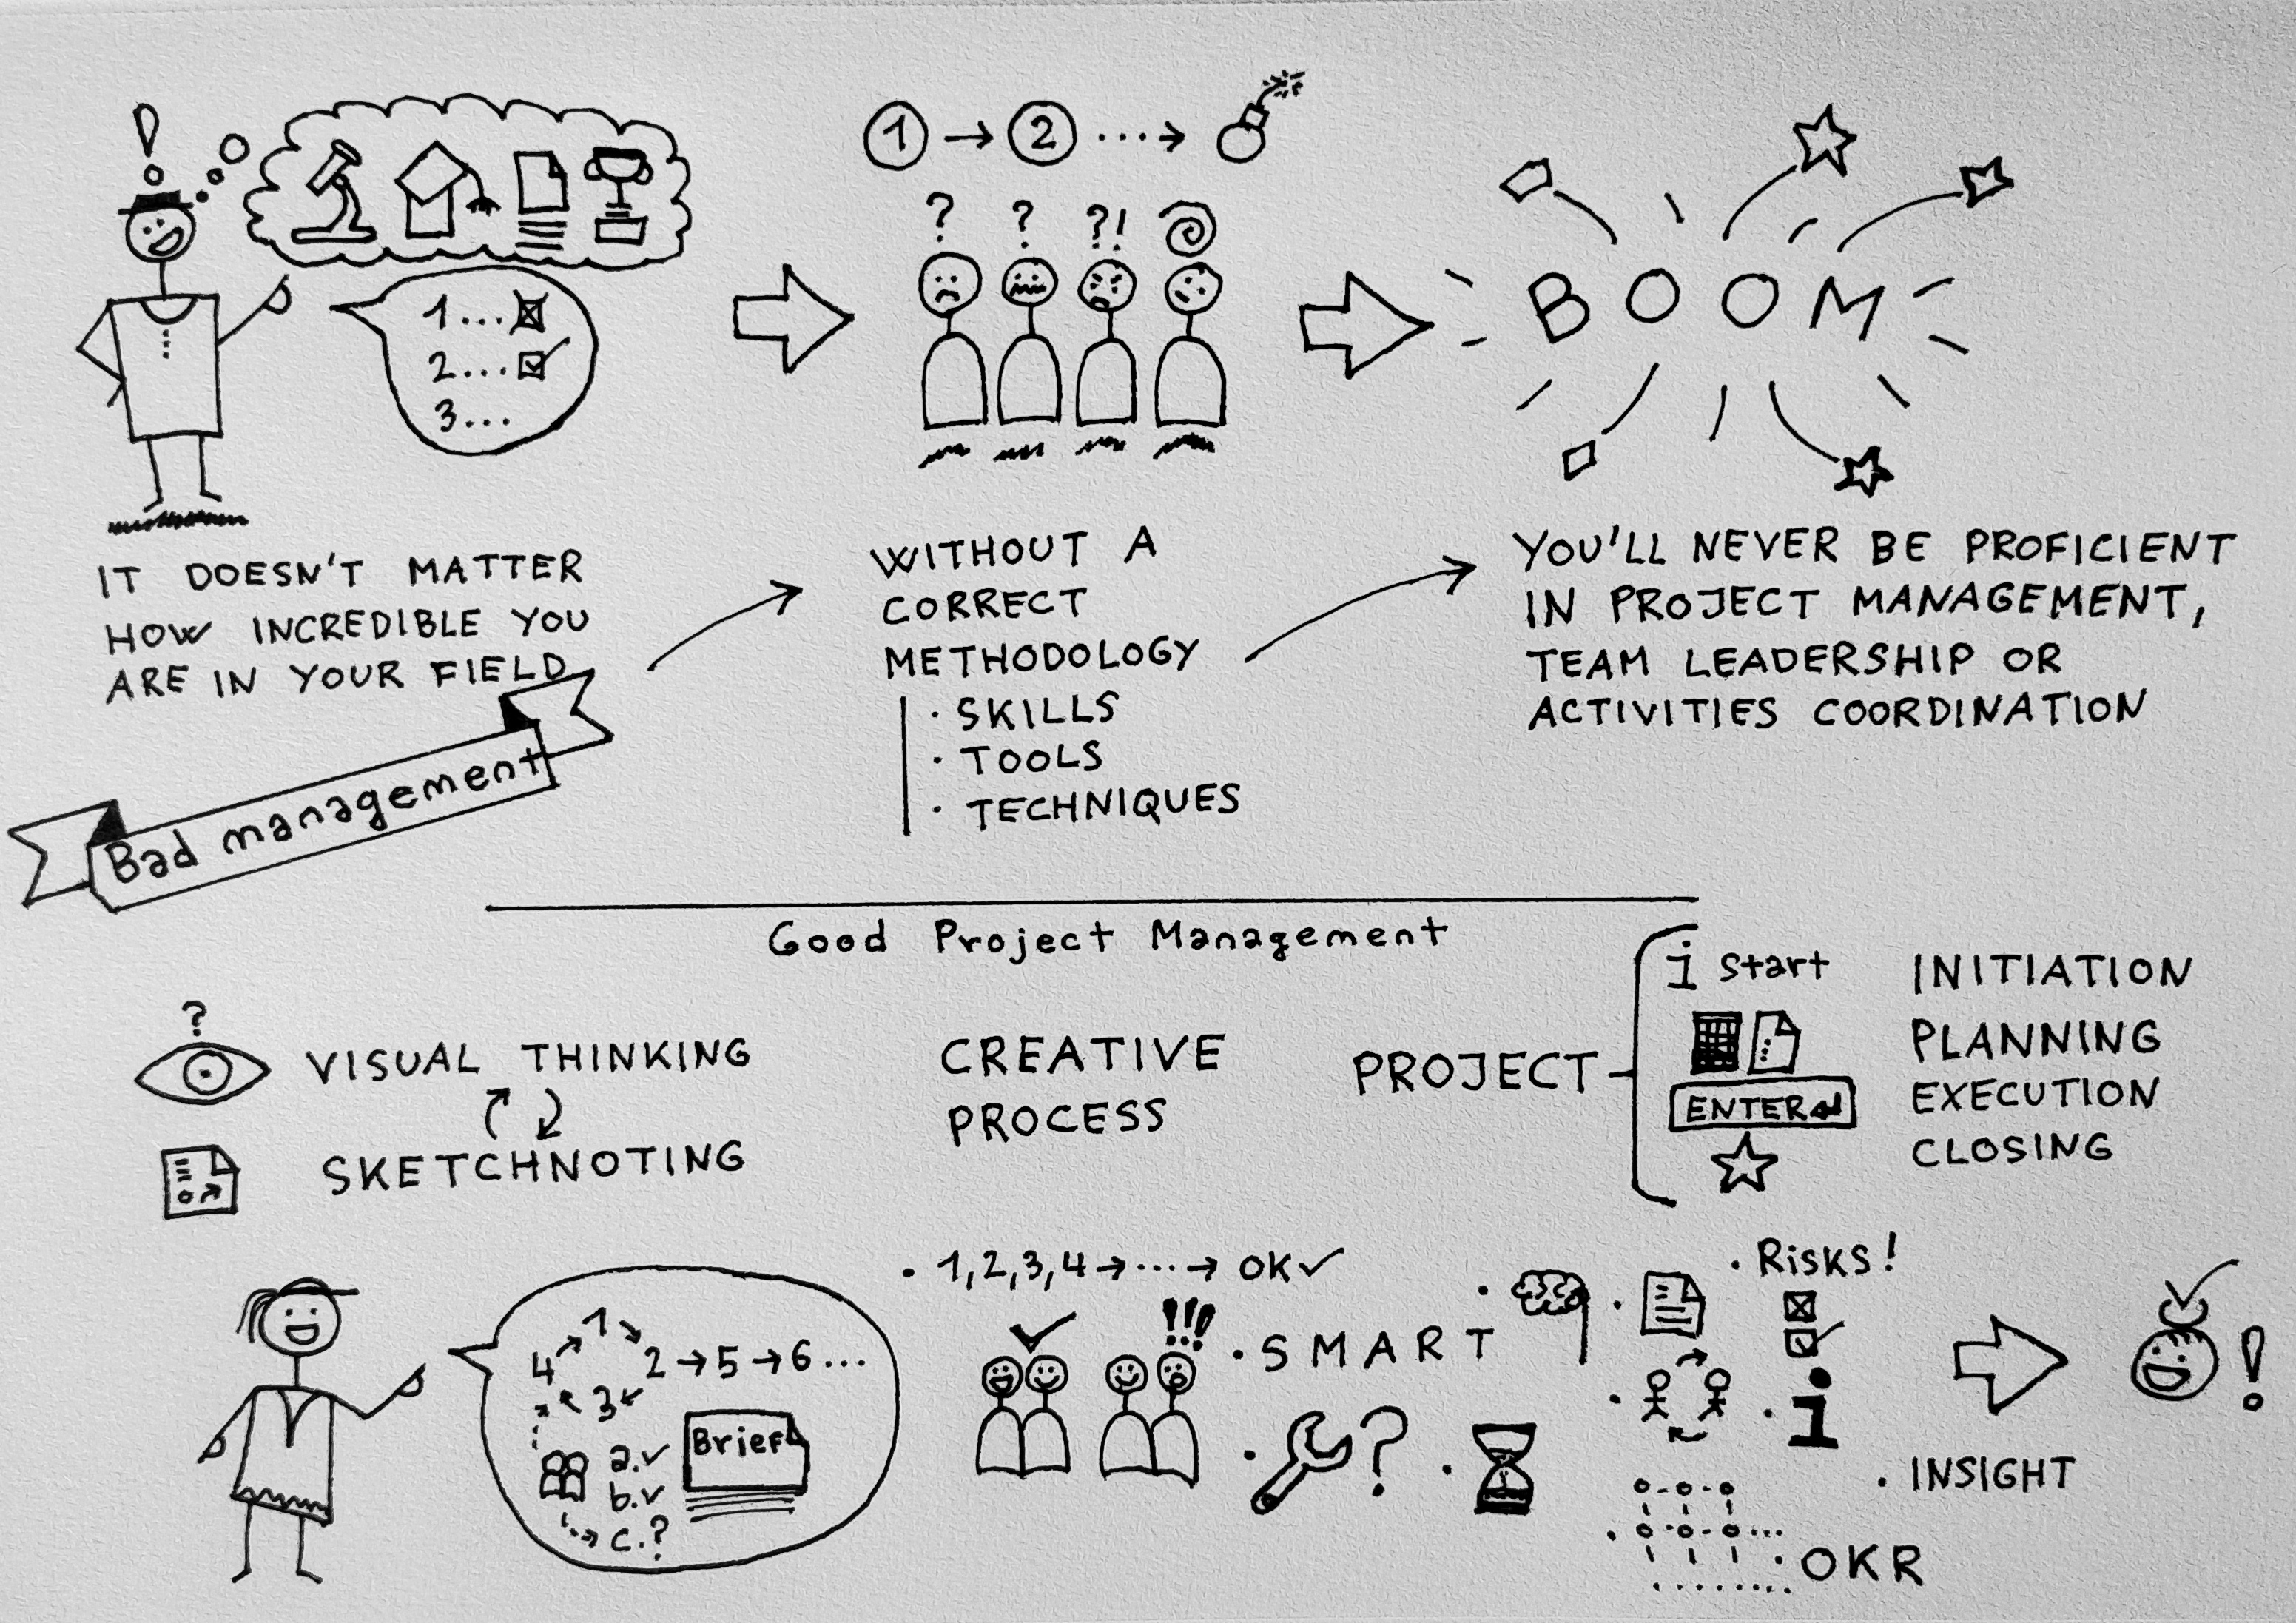 !
1...
2...
3...
1 → 2 ...→
? ? ?!
BOOM
IT DOESN'T MATTER
HOW INCREDIBLE YOU
ARE IN YOUR FIELD
WITHOUT A
CORRECT
METHODOLOGY
· SKILLS
· TOOLS
· TECHNIQUES
YOU'LL NEVER BE PROFICIENT
IN PROJECT MANAGEMENT,
TEAM LEADERSHIP OR
ACTIVITIES COORDINATION
Bad management
Good Project Management
?
VISUAL THINKING
SKETCHNOTING
CREATIVE
PROCESS
PROJECT
i start
ENTER
INITIATION
PLANNING
EXECUTION
CLOSING
4 → 1 → 2 → 5 → 6...
3
a.✓
b.✓
c.?
Brief
· 1,2,3,4 → ... → OK ✓
!!!
· SMART
?
· Risks!
· i
!
· INSIGHT
· OKR